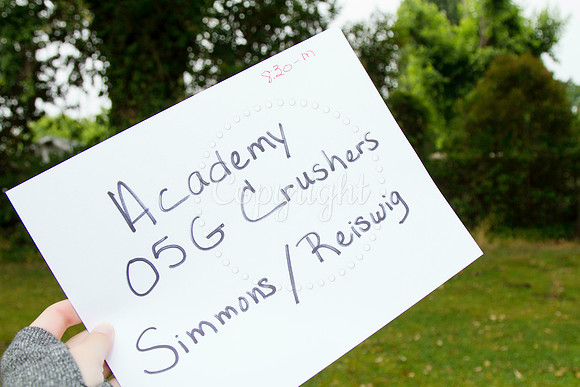 8:30-m
Academy
05G Crushers
Copyright
Simmons/Reiswig